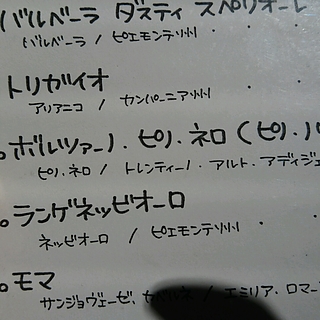 バルベーラ ダスティ スペリオーレ
バルベーラ / ピエモンテ州
トリガイオ
アリアニコ / カンパーニア州
ボルツァーノ・ピノ・ネロ (ピノ・
ピノ・ネロ / トレンティーノ・アルト・アディジェ
ランゲネッビオーロ
ネッビオーロ / ピエモンテ州
モマ
サンジョヴェーゼ、 / エミリア・ロマー